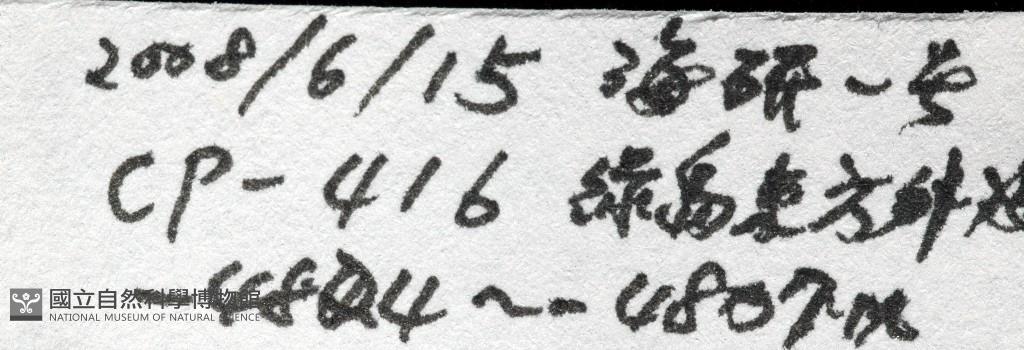 2008/6/15 海研一号
CP-416 绿岛東方外海
4824~-4807m
國立自然科學博物館
NATIONAL MUSEUM OF NATURAL SCIENCE